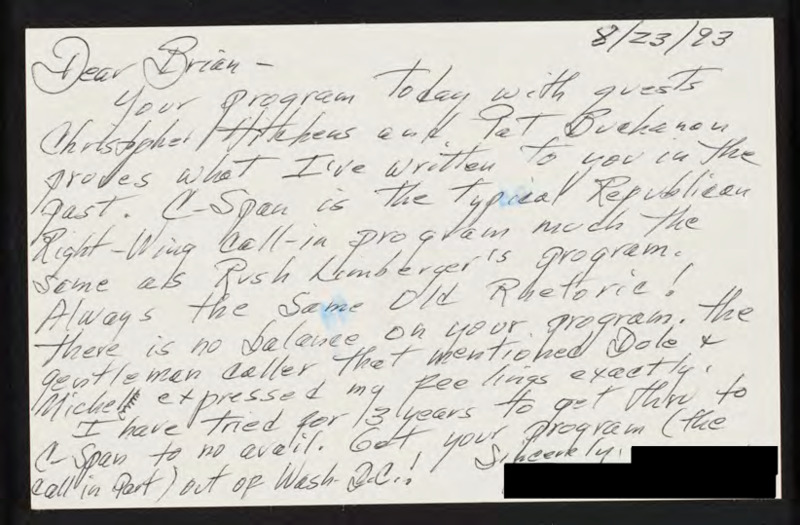 8/23/93
Dear Brian-
Your program today with guests
Christopher Hitchens and Pat Buchanan
proves what I've written to you in the
past. C-Span is the typical Republican
Right-Wing Call-in program much the
same as Rush Limberger's program.
Always the same Old Rhetoric!
there is no balance on your program. The
gentleman caller that mentioned Dole &
Michel expressed my feelings exactly.
I have tried for 13 years to get thru to
C-Span to no avail. Get your program (the
Call in Part) out of Wash. D.C.! Sincerely,